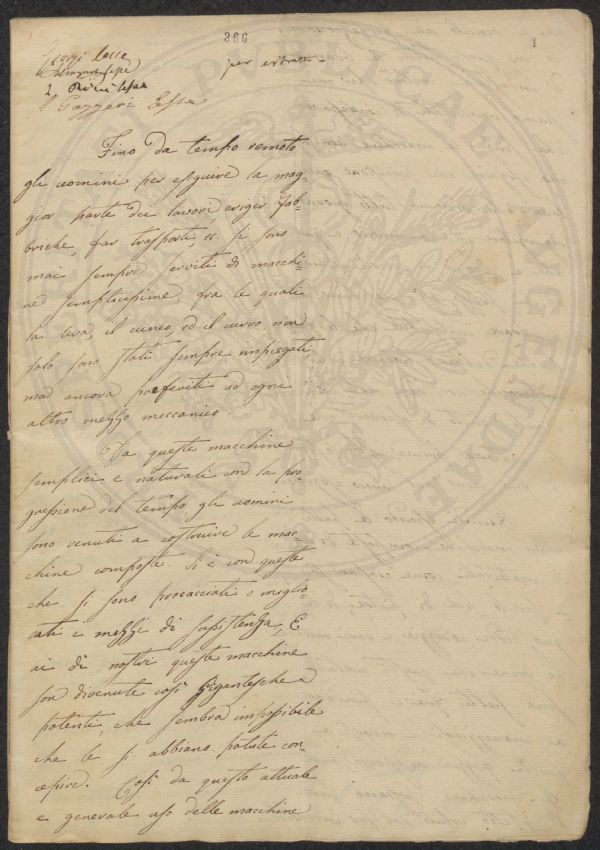 366
1
Lesse
per estratto
2
Gazzeri Lesse
Fino da tempo remoto
gli uomini per eseguire la mag-
gior parte dei lavori, eriger fab-
briche, far trasporti, ec. si sono
mai sempre serviti di macchi-
ne semplicissime, fra le quali
la leva, il cuneo, ed il curvo, non
solo sono stati sempre impiegati
ma ancora preferiti ad ogni
altro mezzo meccanico.
Da queste macchine
semplici e naturali con la pro-
gressione del tempo, gli uomini
sono venuti a costruire le mac-
chine composte. Si è con queste
che si sono procacciati o miglio-
rati i mezzi di sussistenza, E
ai dì nostri queste macchine
son divenute così Gigantesche e
potenti, che sembra impossibile
che le si abbiano potute con-
cepire. Così da questo attuale
e generale uso delle macchine
PUBLICAE
AUGENDAE